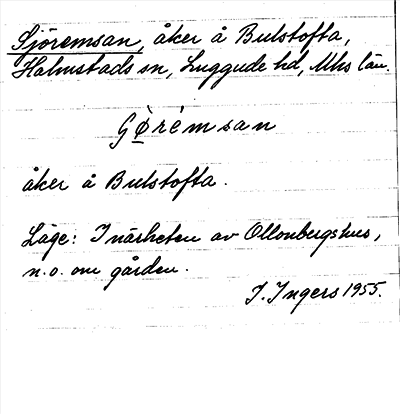 Sjöremsan, åker å Bulstofta,
Halmstads sn, Luggude hd, Mhs län.
Gø̀ré̀msan
åker å Bulstofta.
Läge: I närheten av Ollonbergshus,
n.o. om gården.
I. Ingers 1955.